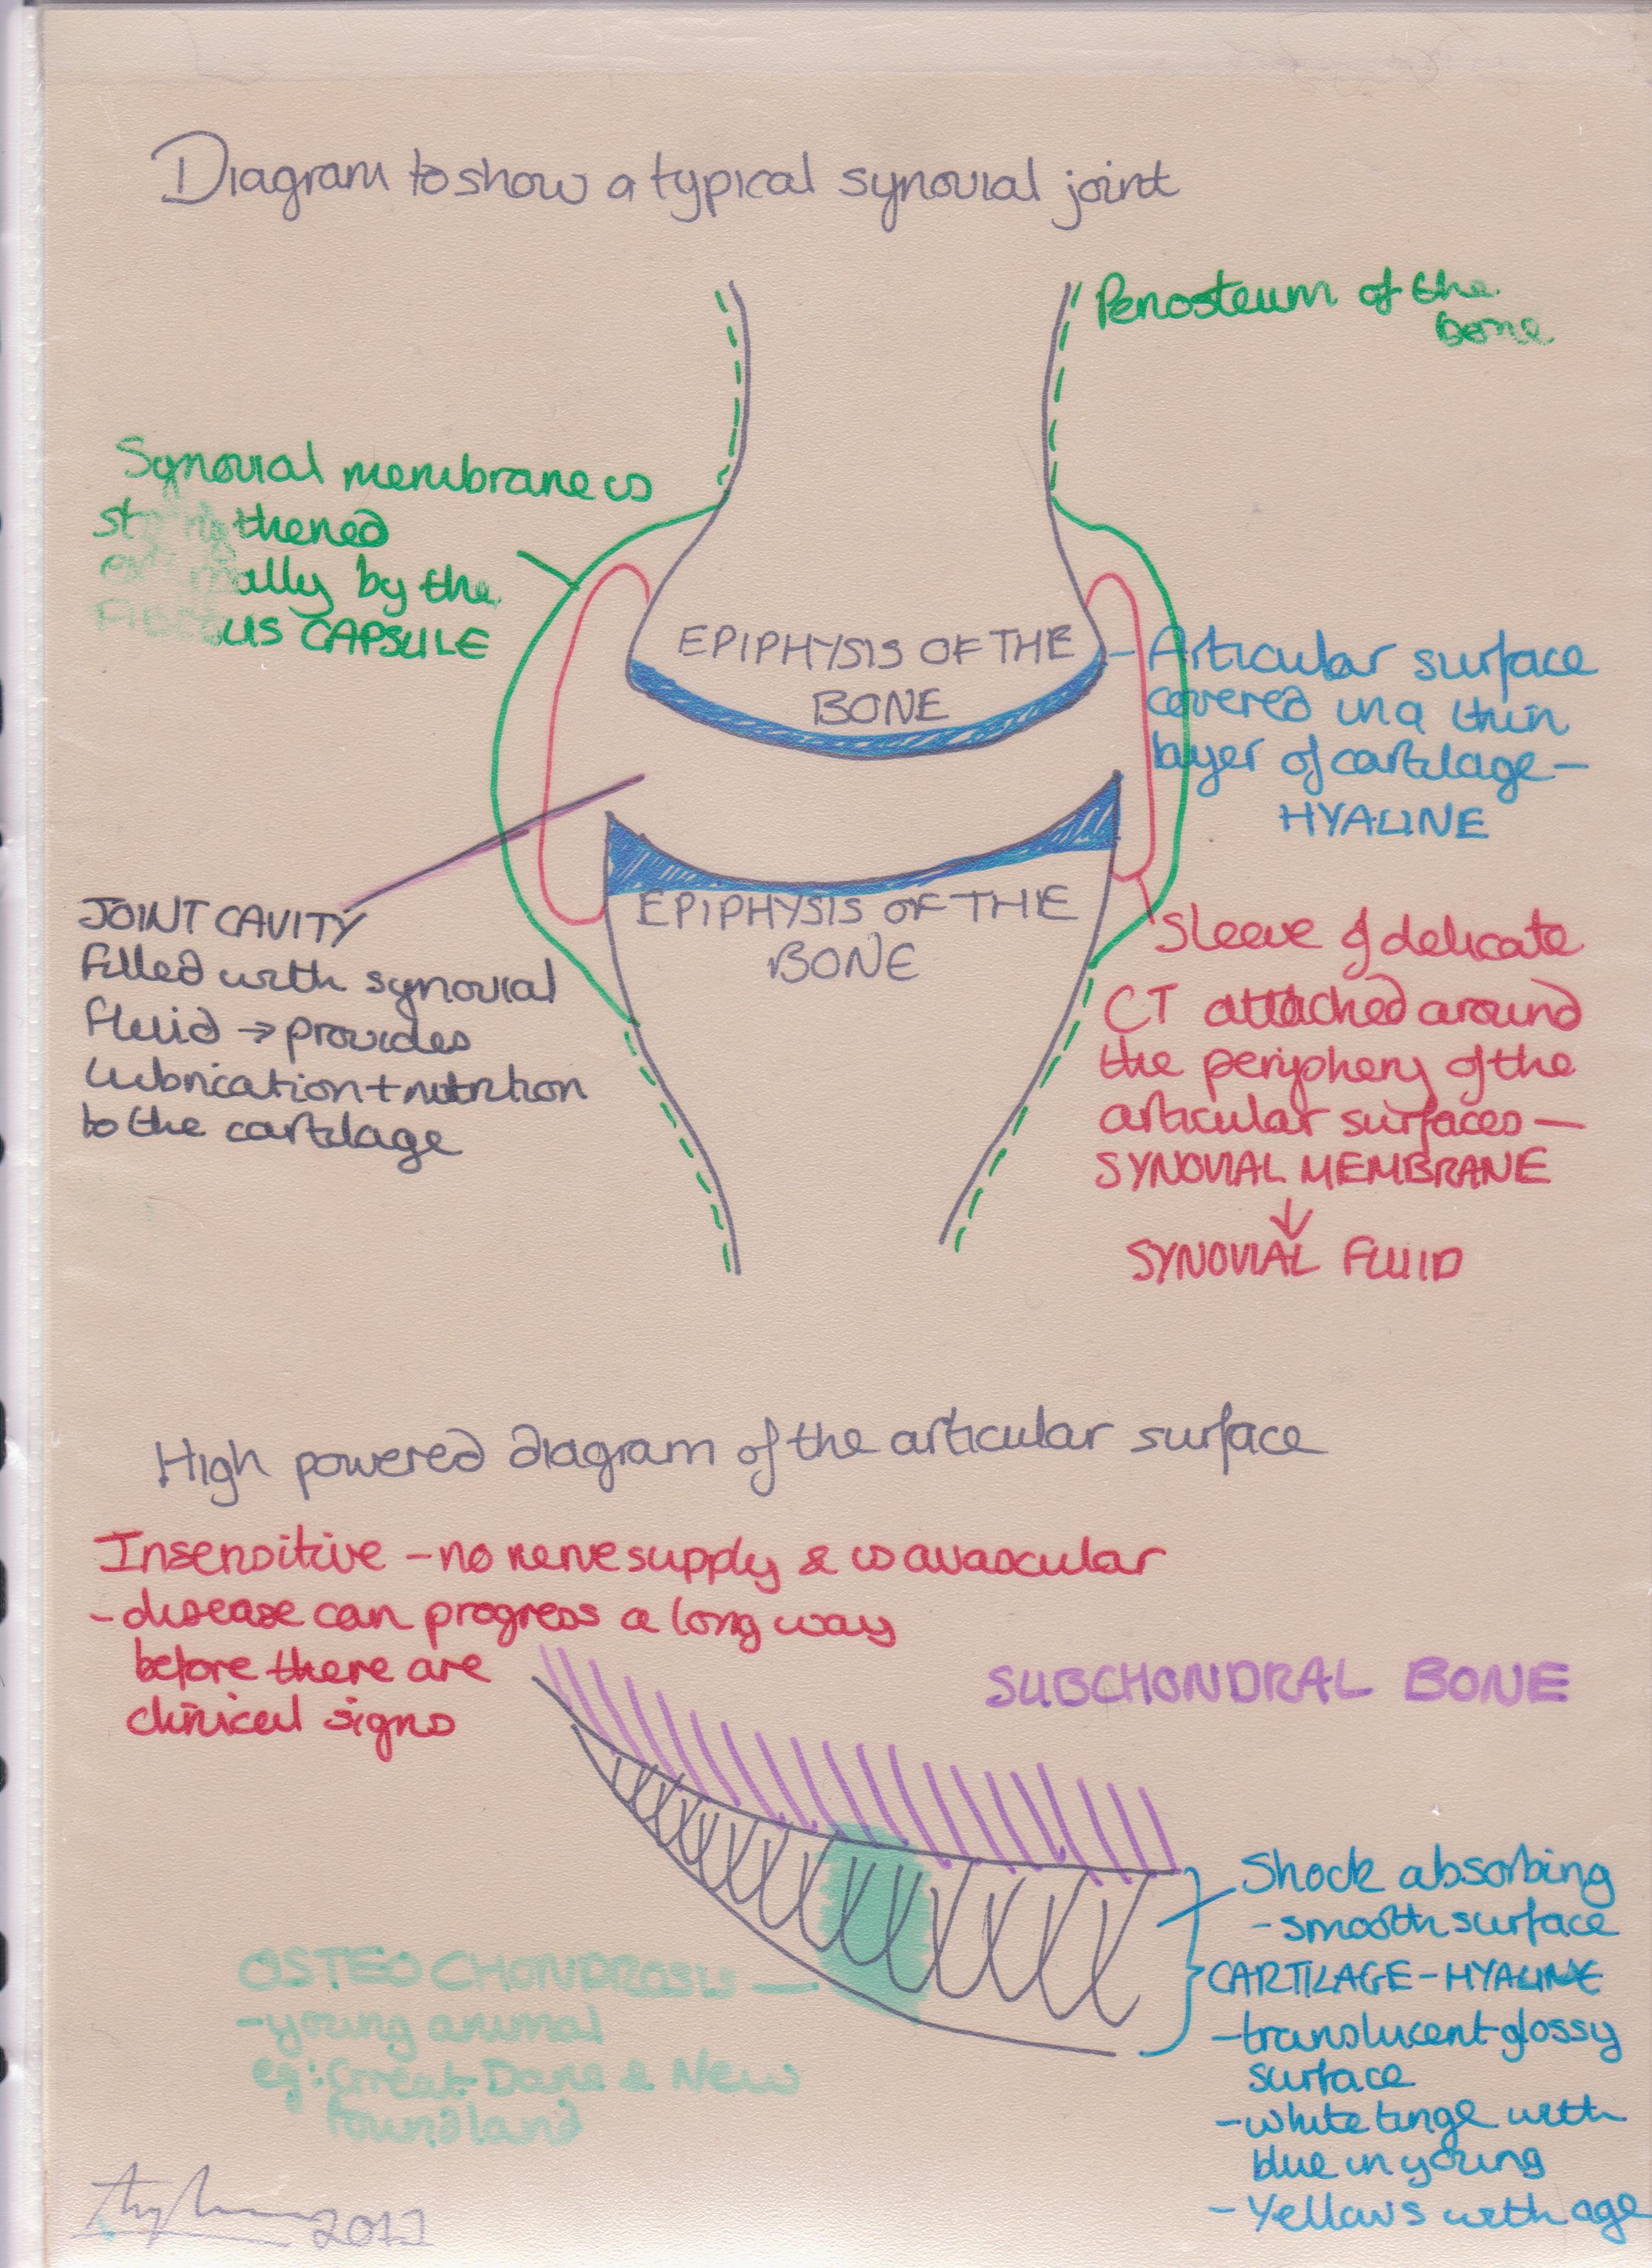 Diagram to show a typical synovial joint
Periosteum of the
bone
Synovial membrane is
strengthened
externally by the
FIBROUS CAPSULE
EPIPHYSIS OF THE
BONE
Articular surface
covered in a thin
layer of cartilage –
HYALINE
EPIPHYSIS OF THE
BONE
JOINT CAVITY
filled with synovial
fluid → provides
lubrication + nutrition
to the cartilage
Sleeve of delicate
CT attached around
the periphery of the
articular surfaces –
SYNOVIAL MEMBRANE
↓
SYNOVIAL FLUID
High powered diagram of the articular surface
Insensitive – no nerve supply & is avascular
– disease can progress a long way
before there are
clinical signs
SUBCHONDRAL BONE
Shock absorbing
– smooth surface
CARTILAGE – HYALINE
– translucent glossy
surface
– white tinge with
blue in young
– Yellows with age
OSTEOCHONDROSIS
– young animal
eg: Great Dane & New
foundland